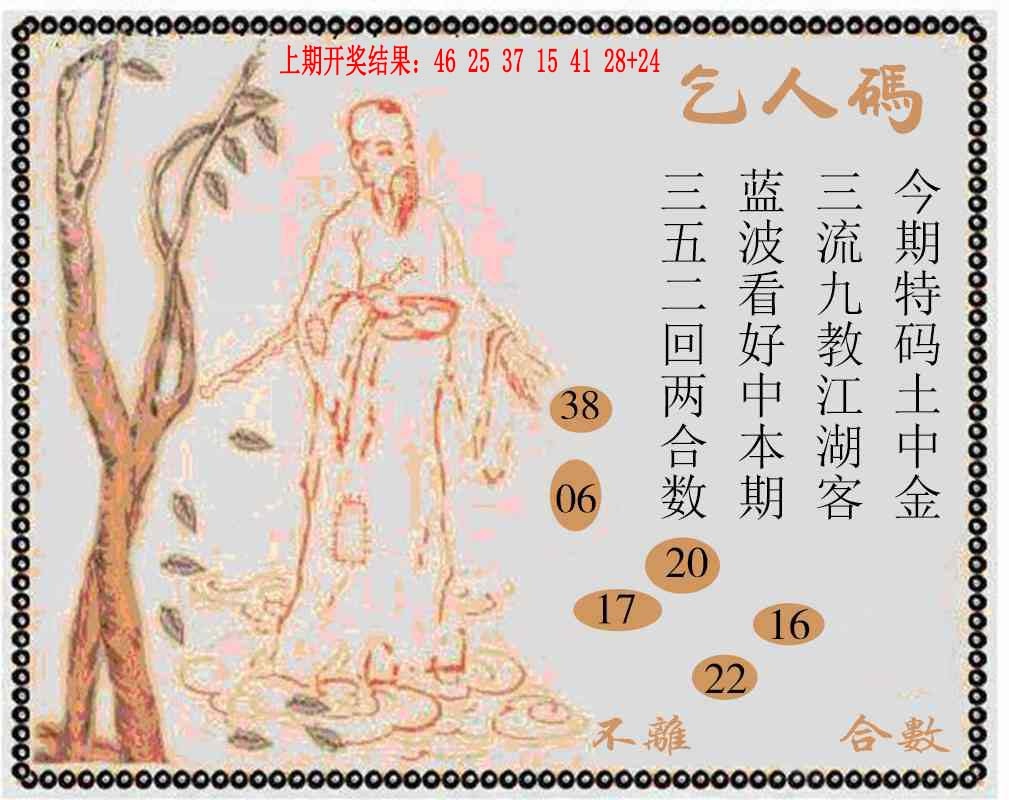 上期开奖结果：46 25 37 15 41 28+24
乞人碼
今期特码土中金
三流九教江湖客
蓝波看好中本期
三五二回两合数
38
06
20
17
16
22
不離
合數